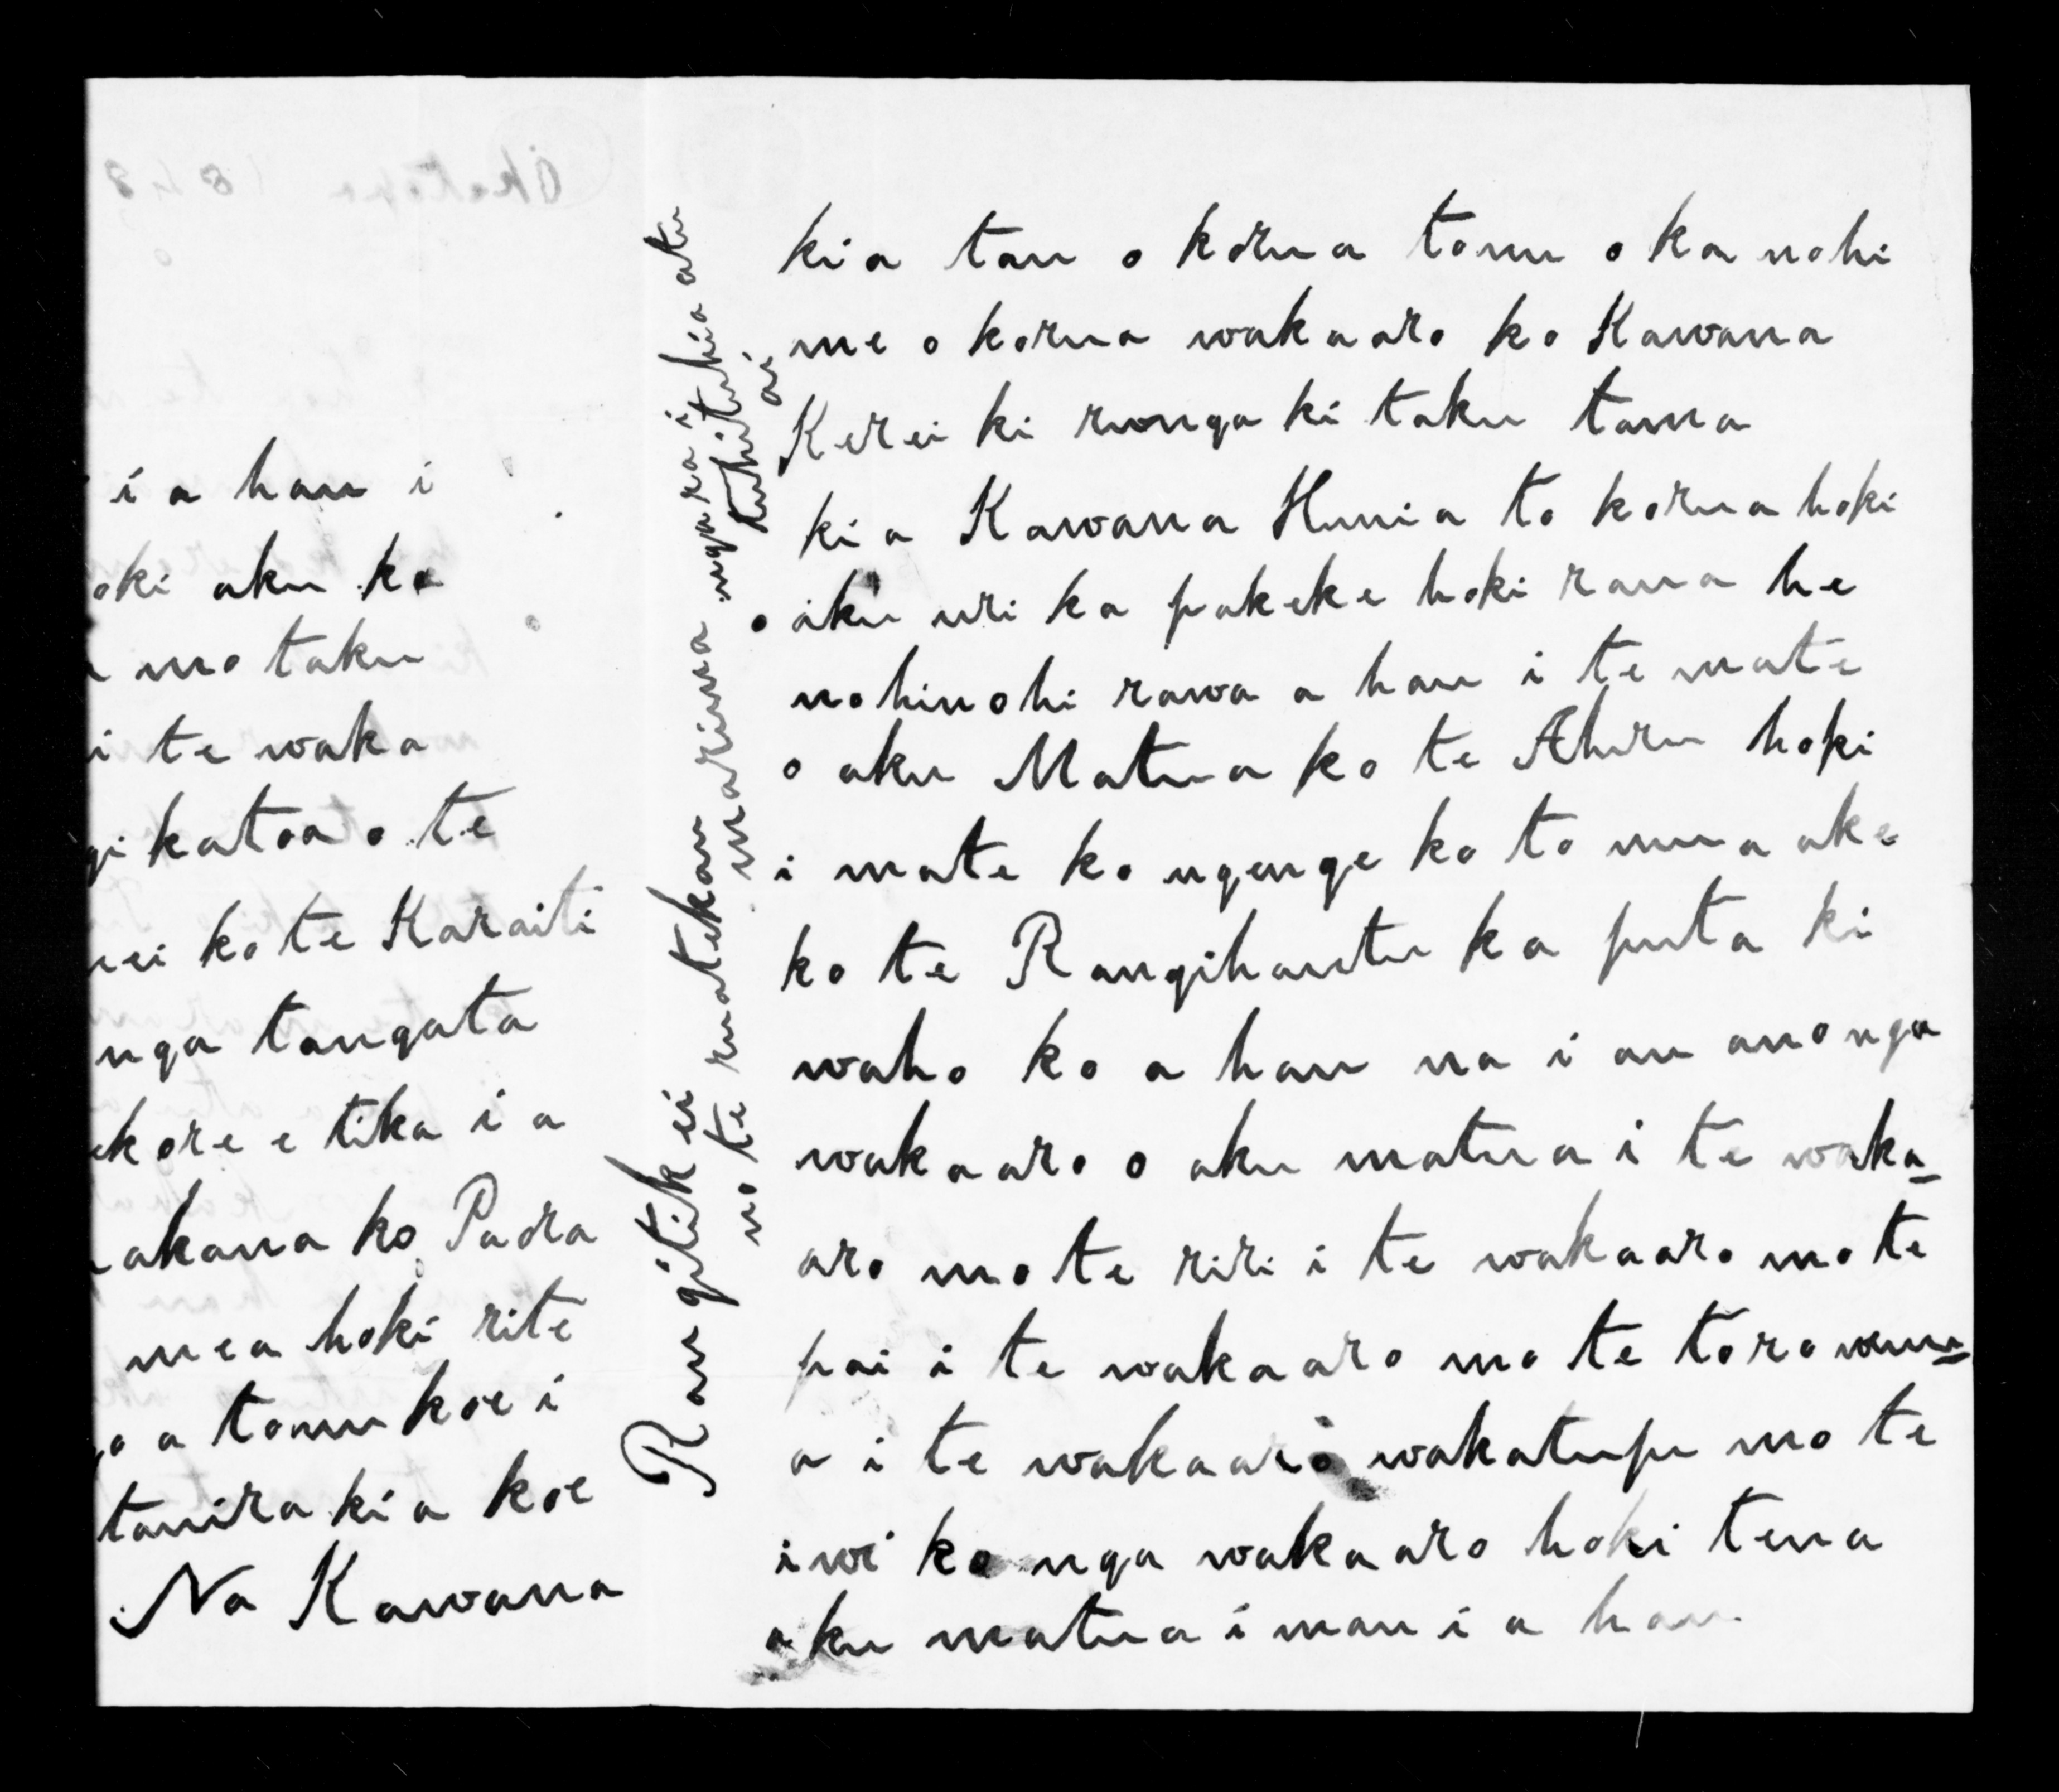 i a hau i
oki aku ko
mo taku
i te waka
gi katoa o te
nei ko te Karaiti
nga tangata
ekore e tika i a
akana ko Paora
mea hoki rite
a tomu koe i
tauira ki a koe
Na Kawana
Rangitikei
no te ruatekau marima nga ra i tuhituhia atu
tuhituhi ai
kia tau o korua tomu o kanohi
me o korua wakaaro ko Kawana
Kerei ki runga ki taku tama
kia Kawana Hunia to korua hoki
o aku uri ka pakeke hoki raua he
nohinohi rawa a hau i te mate
o aku Matua ko te Ahuru hoki
i mate ko ngenge ko to mua ake
ko te Rangihautu ka puta ki
waho ko a hau na i au ano nga
wakaaro o aku matua i te waka=
aro mo te riri i te wakaaro mo te
pai i te wakaaro mo te torowenu=
a i te wakaaro wakatupu mo te
iwi ko nga wakaaro hoki tena
aku matua i mau i a hau